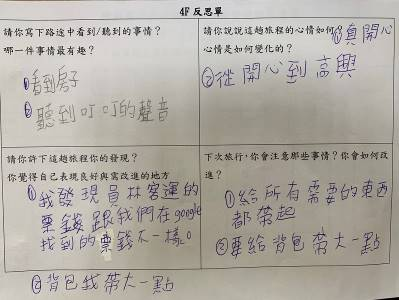 4F 反思單
請你寫下路途中看到/聽到的事情?
哪一件事情最有趣?
①看到房子
②聽到叮叮的聲音
請你說說這趟旅程的心情如何?
心情是如何變化的?
①真開心
②從開心到高興
請你許下這趟旅程你的發現?
你覺得自己表現良好與需改進的地方
①我發現員林客運的
票錢跟我們在google
找到的票錢不一樣。
②背包我帶大一點
下次旅行,你會注意那些事情?你會如何改
進?
①給所有需要的東西
都帶起
②要給背包帶大一點